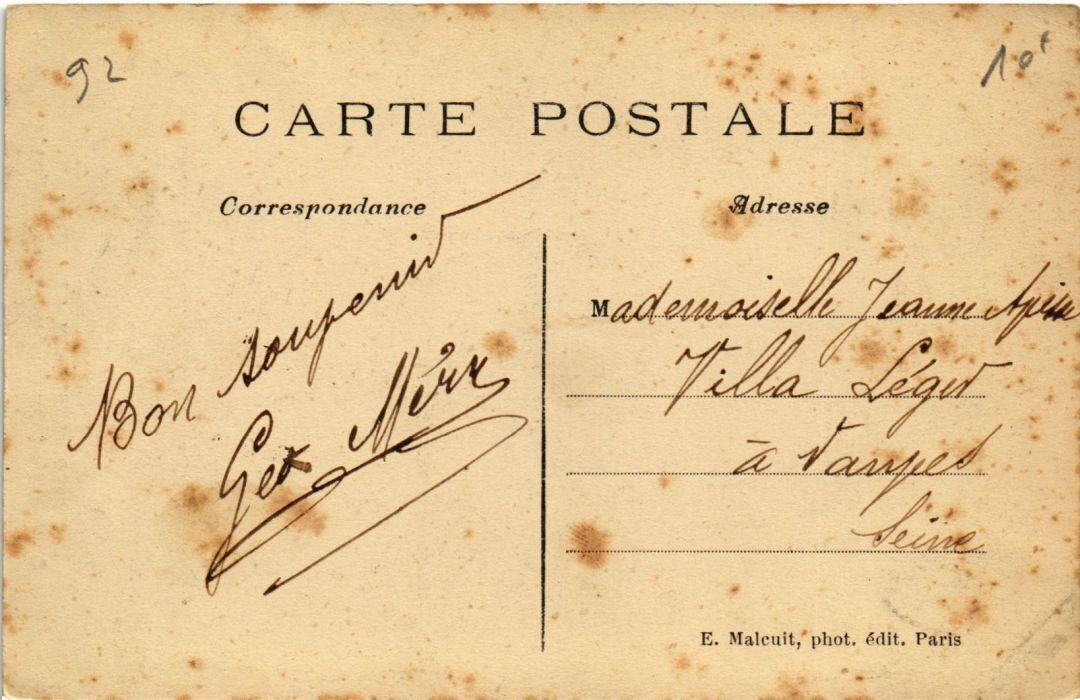 92
10f
CARTE POSTALE
Correspondance
Adresse
Bon souvenir
Mademoiselle Jeanne
Villa Léger
à Vanves
Seine
E. Malcuit, phot. édit. Paris